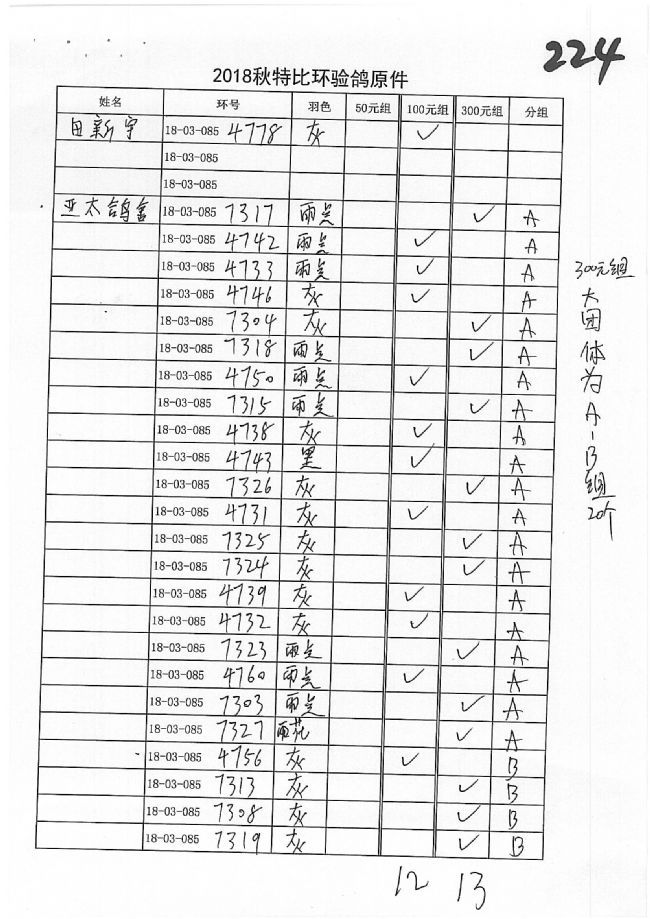 224
2018秋特比环验鸽原件
姓名 环号 羽色 50元组 100元组 300元组 分组
田新宇 18-03-085 4778 灰 ✓
18-03-085
18-03-085
亚太鸽舍 18-03-085 7317 雨点 ✓ A
18-03-085 4742 雨点 ✓ A
18-03-085 4733 雨点 ✓ A
18-03-085 4746 灰 ✓ A
18-03-085 7304 灰 ✓ A
18-03-085 7318 雨点 ✓ A
18-03-085 4750 雨点 ✓ A
18-03-085 7315 雨点 ✓ A
18-03-085 4738 灰 ✓ A
18-03-085 4743 黑 ✓ A
18-03-085 7326 灰 ✓ A
18-03-085 4731 灰 ✓ A
18-03-085 7325 灰 ✓ A
18-03-085 7324 灰 ✓ A
18-03-085 4739 灰 ✓ A
18-03-085 4732 灰 ✓ A
18-03-085 7323 雨点 ✓ A
18-03-085 4760 雨点 ✓ A
18-03-085 7303 雨点 ✓ A
18-03-085 7327 雨花 ✓ A
18-03-085 4756 灰 ✓ B
18-03-085 7313 灰 ✓ B
18-03-085 7308 灰 ✓ B
18-03-085 7319 灰 ✓ B
12 13
300元组
大
团
体
为
A
-
B
组
20个